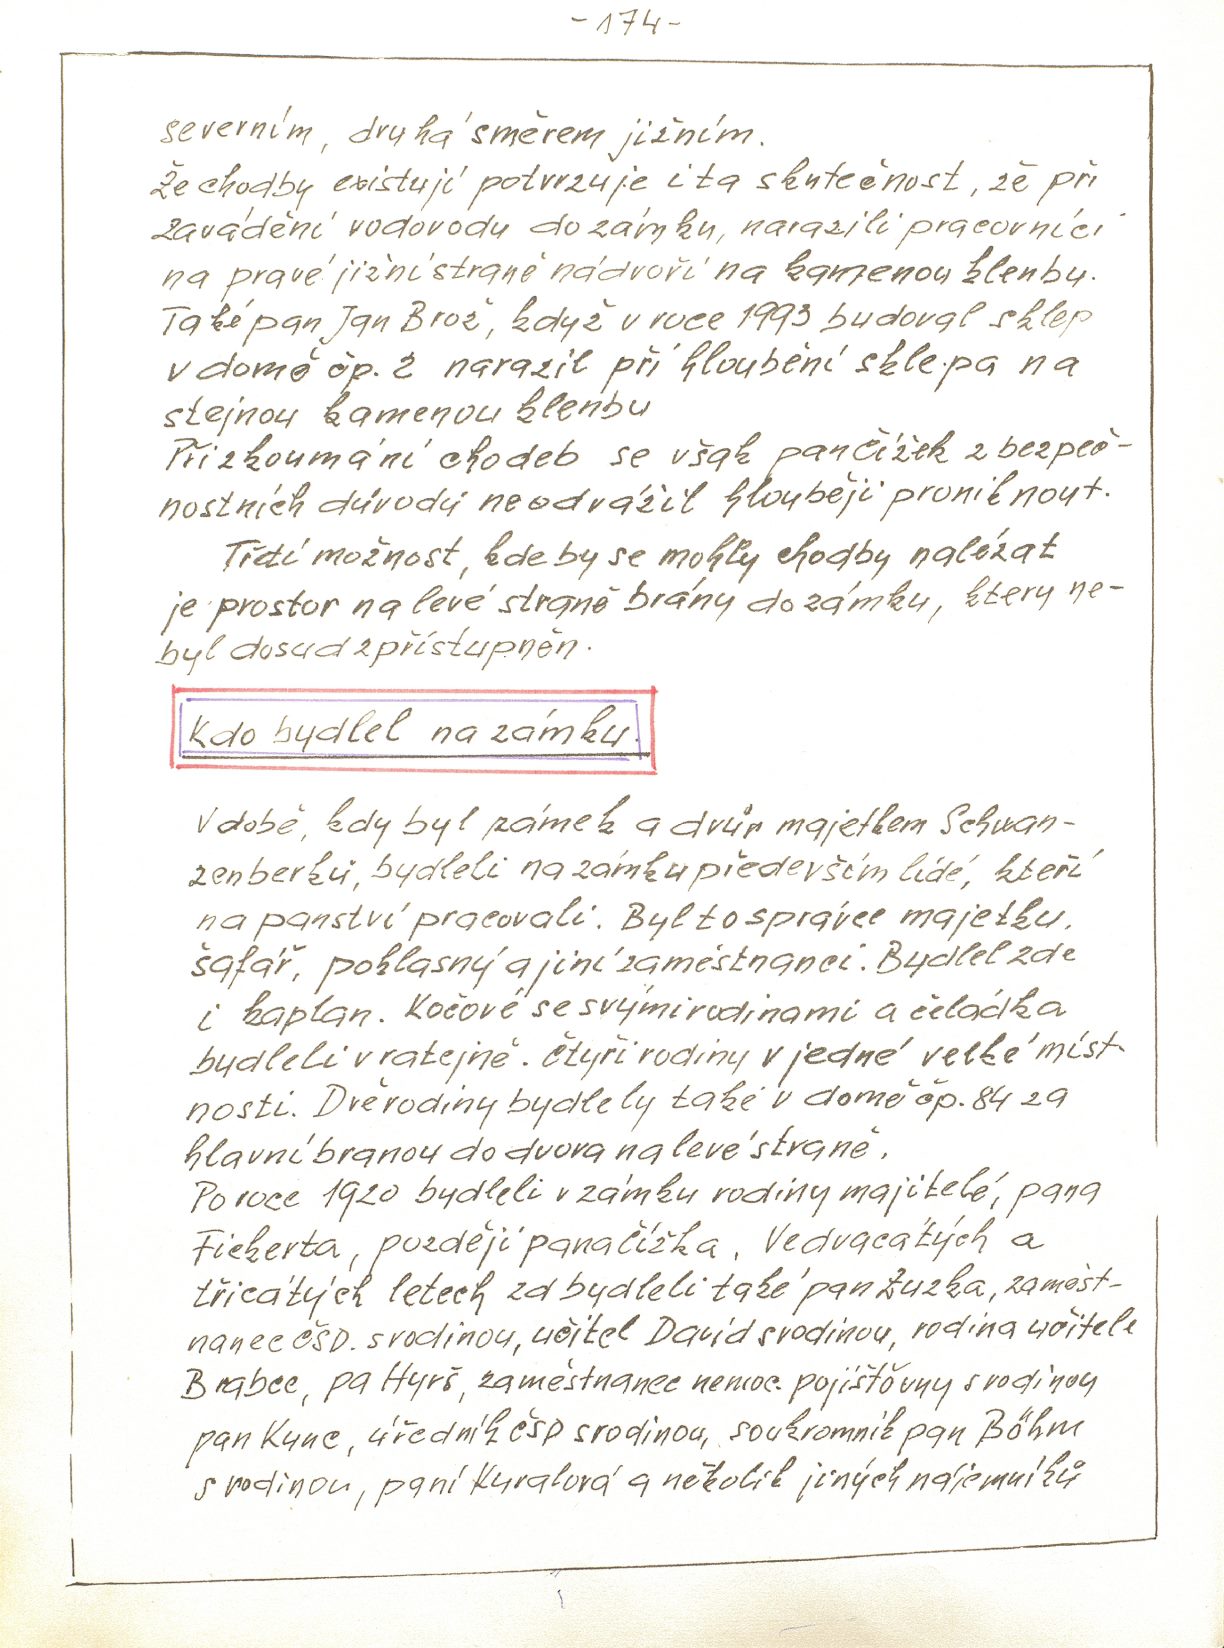 -174-
severním, druhá směrem jižním.
Že chodby existují potvrzuje i ta skutečnost, žě při
zavádění vodovodu do zámku, narazili pracovníci
na pravé jižní straně nádvoří na kamenou klenbu.
Také pan Jan Brož, když v roce 1993 budoval sklep
v domě čp. 2 narazil při hloubění sklepa na
stejnou kamenou klenbu
Při zkoumání chodeb se však pan Čížek z bezpeč-
nostních důvodů neodvážil hlouběji proniknout.
Třetí možnost, kde by se mohly chodby nalézat
je prostor na levé straně brány do zámku, ktery ne-
byl dosud zpřístupněn.
Kdo bydlel na zámku.
V době, kdy byl zámek a dvůr majetkem Schwan-
zenberků, bydleli na zámku především lidé, kteří
na panství pracovali. Byl to správce majetku,
šafář, poklasný a jiní zaměstnanci. Bydlel zde
i kaplan. Kočové se svými rodinami a čeládka
bydleli v ratejně. Čtyři rodiny v jedné velké míst-
nosti. Dvě rodiny bydlely také v domě čp. 84 za
hlavní branou do dvora na levé straně.
Po roce 1920 bydleli v zámku rodiny majitelé, pana
Fickerta, později pana Čížka. Ve dvacátých a
třicátých letech zd bydleli také pan Žuzka, zaměst-
nanec ČSD. s rodinou, učitel David s rodinou, rodina učitele
Brabce, pa Hyrš, zaměstnanec nemoc. pojišťovny s rodinou
pan Kunc, úředník ČSD s rodinou, soukromník pan Böhm
s rodinou, paní Kuralová a několik jiných nájemníků